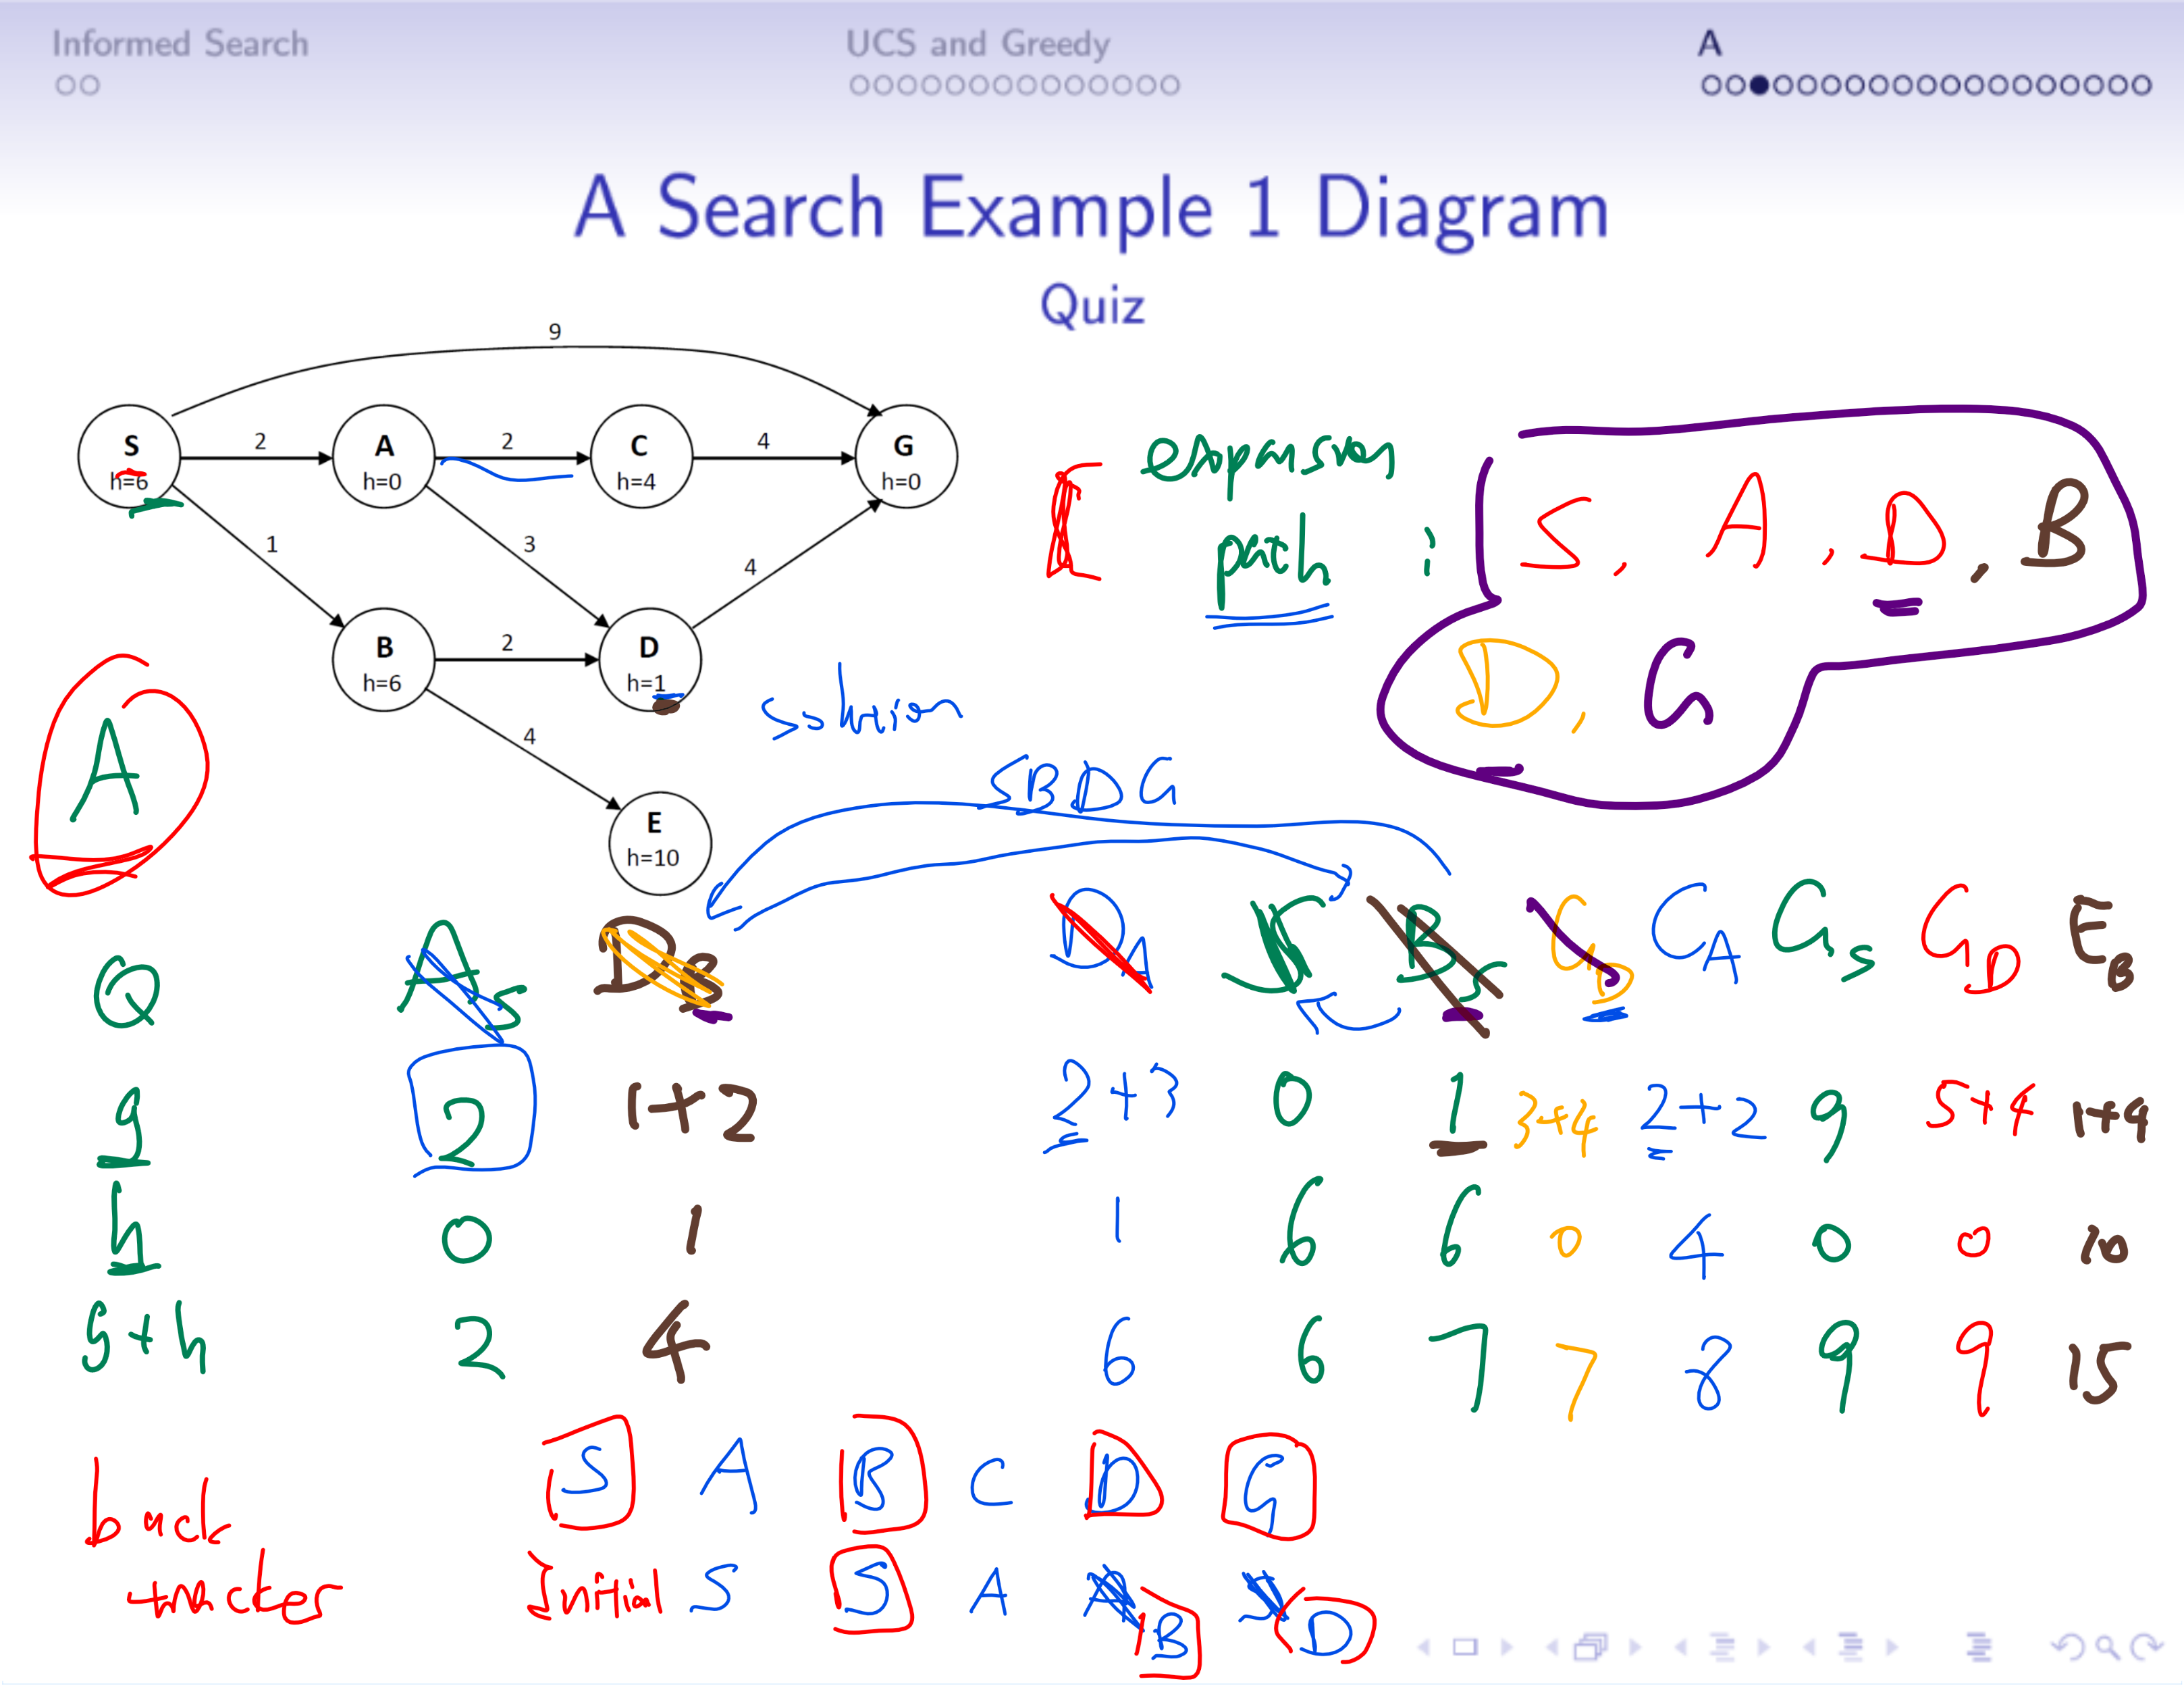 Informed Search
UCS and Greedy
A
A Search Example 1 Diagram
Quiz
9
S
h=6
2
A
h=0
2
C
h=4
4
G
h=0
1
3
4
B
h=6
2
D
h=1
4
E
h=10
expansion
path : S, A, D, B
D, G
solution
SBDG
A
Q A S D B D A S B S G D C A G S G D E B
g 2 1+2 2+3 0 1 3+4 2+2 9 5+4 1+4
h 0 1 1 6 6 0 4 0 0 10
g+h 2 4 6 6 7 7 8 9 9 15
S A B C D G
back
tracker Initial S S A A B S D